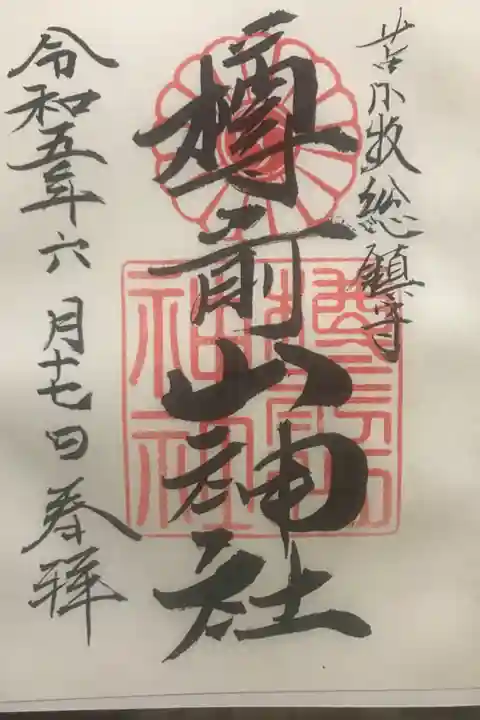 苫小牧総鎮守
樽前山神社
令和五年六月十七日奉拝
樽前山
神社